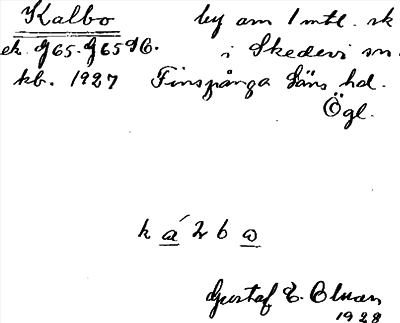 Kalbo by om 1 mtl. sk
ek. J65. J65 Db. i Skedevi sn.
kb. 1927 Finspånga läns hd.
Ögl.
k a´ 2 b o
Gustaf E. Olman
1928